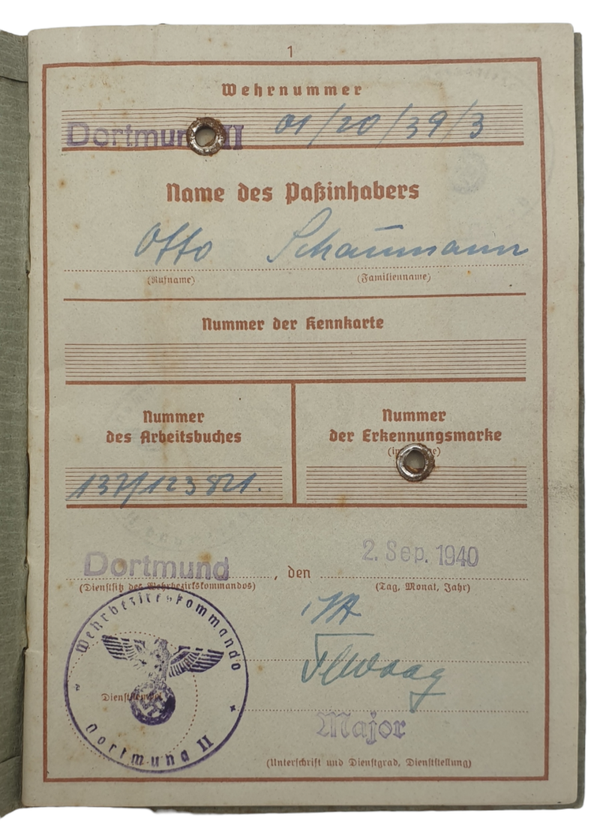 1
Wehrnummer
Dortmund II 01/20/39/3
Name des Paßinhabers
Otto Schaumann
(Rufname) (Familienname)
Nummer der Kennkarte
Nummer des Arbeitsbuches
137/123821.
Nummer der Erkennungsmarke
Dortmund, den 2. Sep. 1940
(Dienstsitz des Wehrbezirkskommandos) (Tag, Monat, Jahr)
Wehrbezirkskommando
Dortmund II
Major
(Unterschrift und Dienstgrad, Dienststellung)